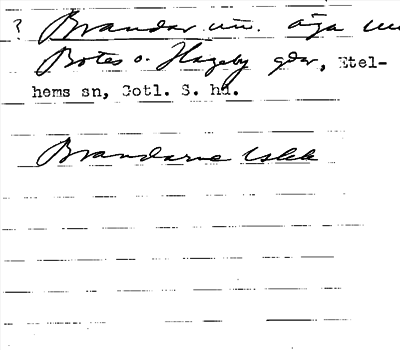 ? Brandar un. äga un
Botes o. Hageby gdr, Etel-
hems sn, Gotl. S. hd.
Brandarve